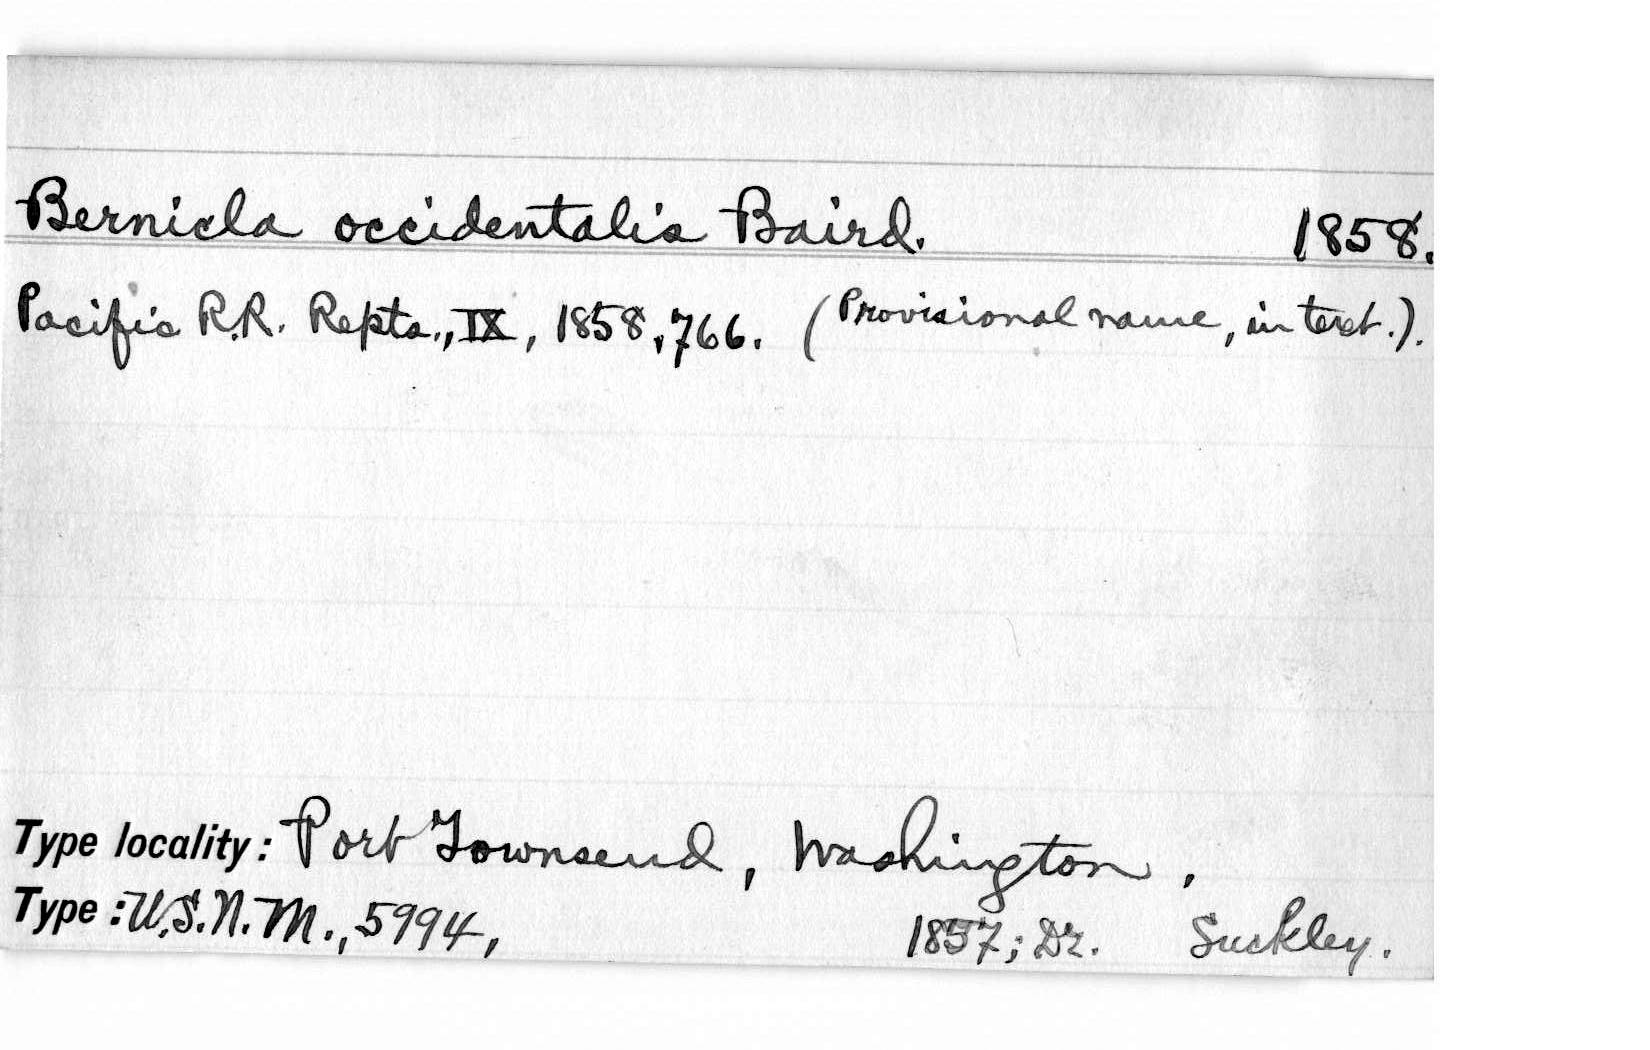 Bernicla occidentalis Baird. 1858.
Pacific R.R. Repts., IX, 1858, 766. (Provisional name, in text.).
Type locality: Port Townsend, Washington,
Type: U.S.N.M., 5994, 1857; Dr. Suckley.